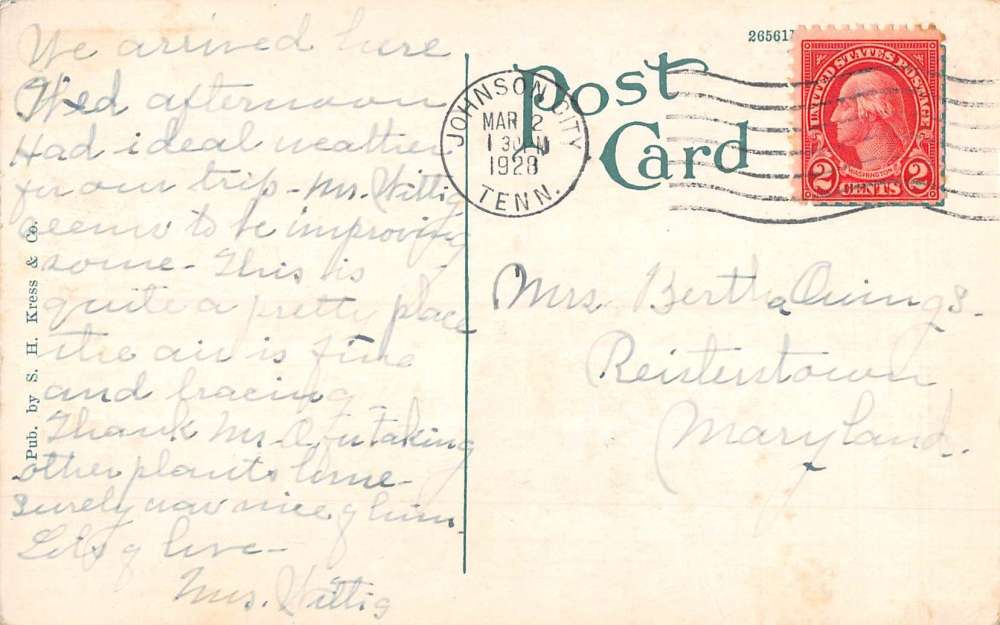 We arrived here
Wed afternoon
Had ideal weather
for our trip - Mr. Wittig
seems to be improving
some - This is
quite a pretty place
the air is fine
and bracing
Thank Mr. O for taking
other plants home -
Surely was nice of him
Lots of love -
Mrs. Wittig
Pub. by S. H. Kress & Co.
26561
Post
Card
JOHNSON CITY
MAR 2
1928
TENN.
UNITED STATES POSTAGE
WASHINGTON
2 CENTS 2
Mrs. Bertha Owings.
Reisterstown
Maryland.